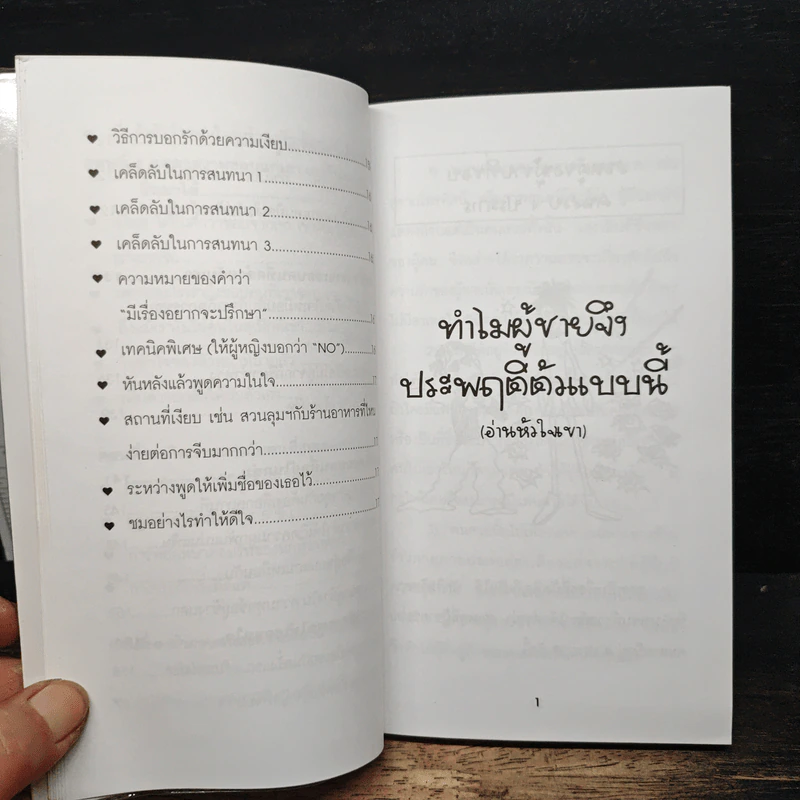 วิธีการบอกรักด้วยความเงียบ
เคล็ดลับในการสนทนา 1
เคล็ดลับในการสนทนา 2
เคล็ดลับในการสนทนา 3
ความหมายของคำว่า
"มีเรื่องอยากจะปรึกษา"
เทคนิคพิเศษ (ให้ผู้หญิงบอกว่า "NO")
หันหลังแล้วพูดความในใจ
สถานที่เงียบ เช่น สวนลุมฯกับร้านอาหารที่ไหน
ง่ายต่อการจีบมากกว่า
ระหว่างพูดให้เพิ่มชื่อของเธอไว้
ชมอย่างไรทำให้ดีใจ
ทำไมผู้ชายจึง
ประพฤติตัวแบบนี้
(อ่านหัวใจเขา)
1